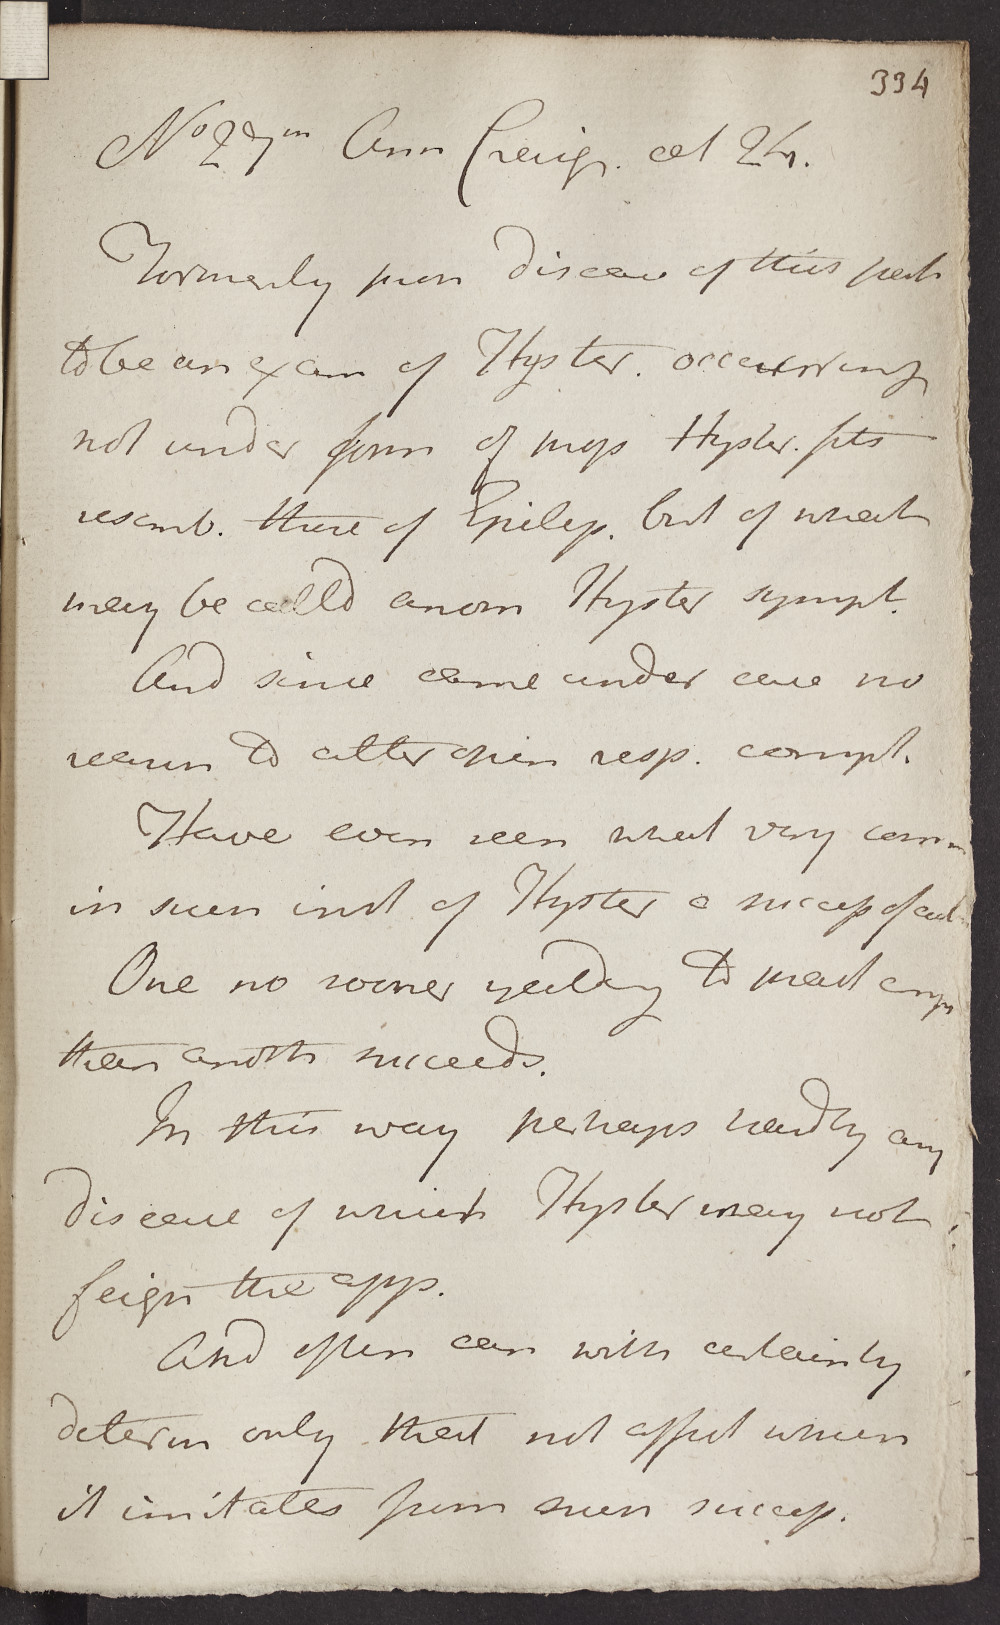 334
No 2d 7m Ann Creig. aet 24.
Formerly pron Disease of this pat
to be an exam of Hyster. occurring
not under form of Hyster. fits
resemb. those of Epilep. but of what
may be calld anom Hyster sympt.
And since came under care no
reason to alter opin resp. compl.
Have even seen what very comm
in such inst of Hyster a success of
One no sooner yeelding to med
than anoth succeeds.
In this way perhaps hardly any
disease of which Hyster may not
feign the app.
And often can with certainty
determ only that not affect which
it imitates from such success.